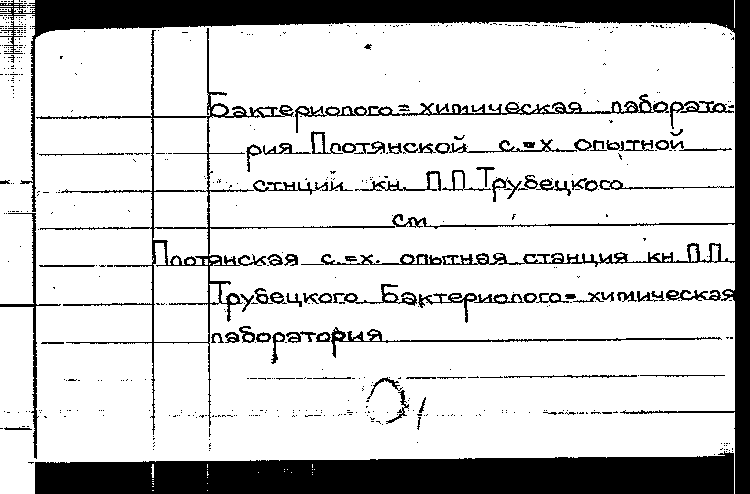 Бактериолого=химическая лаборато-
рия Плотянской с.=х. опытной
станций кн. П.П.Трубецкого
см.
Плотянская с.=х. опытная станция кн.П.П.
Трубецкого. Бактериолого=химическая
лаборатория.